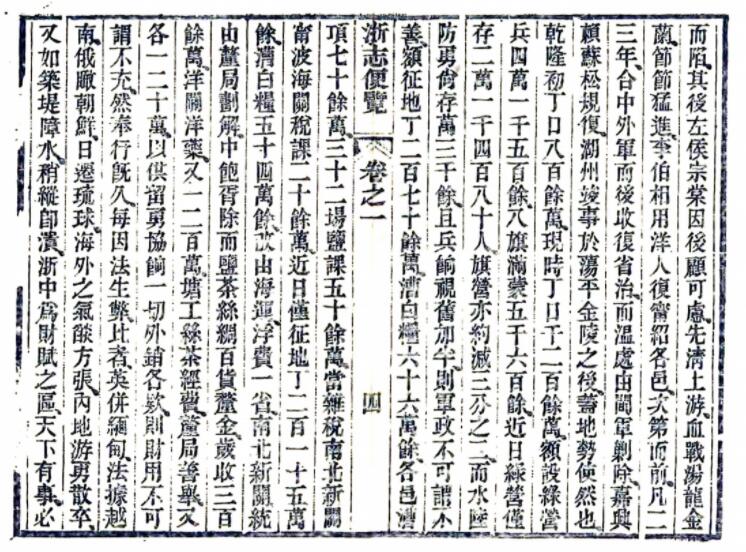 而陷其後左侯宗棠因後顧可慮先淸上游血戰湯龍金
蘭節節猛進李伯相用洋人復甯紹各邑次第而前凡二
三年合中外軍而後收復省治而溫處由閩軍剿除嘉興
賴蘇松規復湖州竣事於蕩平金陵之後蓋地勢使然也
乾隆初丁口八百餘萬現時丁口千二百餘萬額設綠營
兵四萬一千五百餘八旗滿蒙五千六百餘近日綠營僅
存二萬一千四百八十人旗營亦約減三分之二而水陸
防勇尙存萬三千餘且兵餉視舊加半則軍政不可謂不
善額征地丁二百七十餘萬漕白糧六十六萬餘各邑漕
浙志便覽 卷之一 四
項七十餘萬三十二場鹽課五十餘萬當雜稅南北新關
甯波海關稅課二十餘萬近日僅征地丁二百一十五萬
餘漕白糧五十四萬餘改由海運浮費一省南北新關統
由釐局劃解中飽胥除而鹽茶絲綢百貨釐金歲收三百
餘萬洋關洋藥又一二百萬塘工絲茶經費釐局善舉又
各一二十萬以供留勇協餉一切外銷各款則財用不可
謂不充然奉行旣久每因法生弊比者英併緬甸法據越
南俄瞰朝鮮日遷琉球海外之氣燄方張內地游勇散卒
又如築堤障水稍縱卽潰浙中爲財賦之區天下有事必